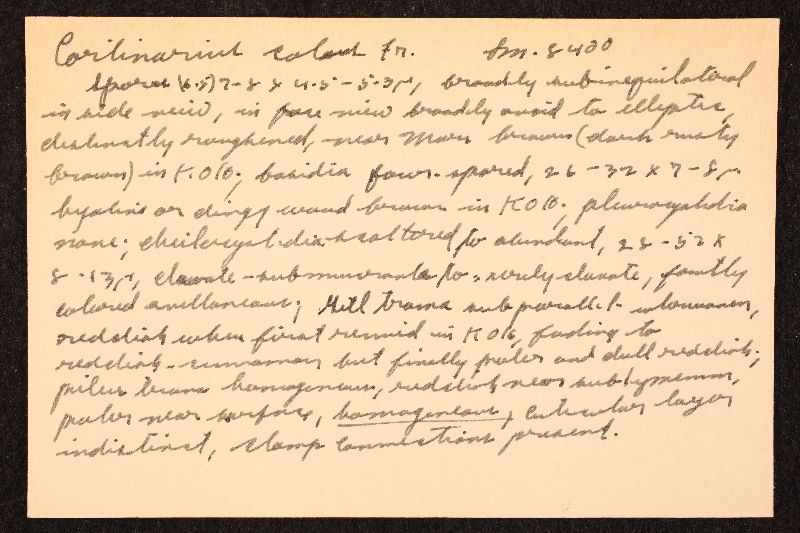 Cortinarius colus Fr. Sm. 8400
Spores (6.5) 7-8 x 4.5-5.3µ, broadly subinequilateral
in side view, in face view broadly ovoid to elliptic,
distinctly roughened, near Mars brown (dark rusty
brown) in KOH; basidia four-spored, 26-32 x 7-8µ
hyaline or dingy wood brown in KOH; pleurocystidia
none; cheilocystidia scattered to abundant, 28-52 x
8-13µ, clavate-submucronate to merely clavate, faintly
colored avellaneous; Gill trama subparallel-interwoven,
reddish when first revived in KOH, fading to
reddish-cinnamon but finally paler and dull reddish;
pileus trama homogeneous, reddish near subhymenium,
paler near surface, homogeneous, cuticular layer
indistinct, clamp connections present.